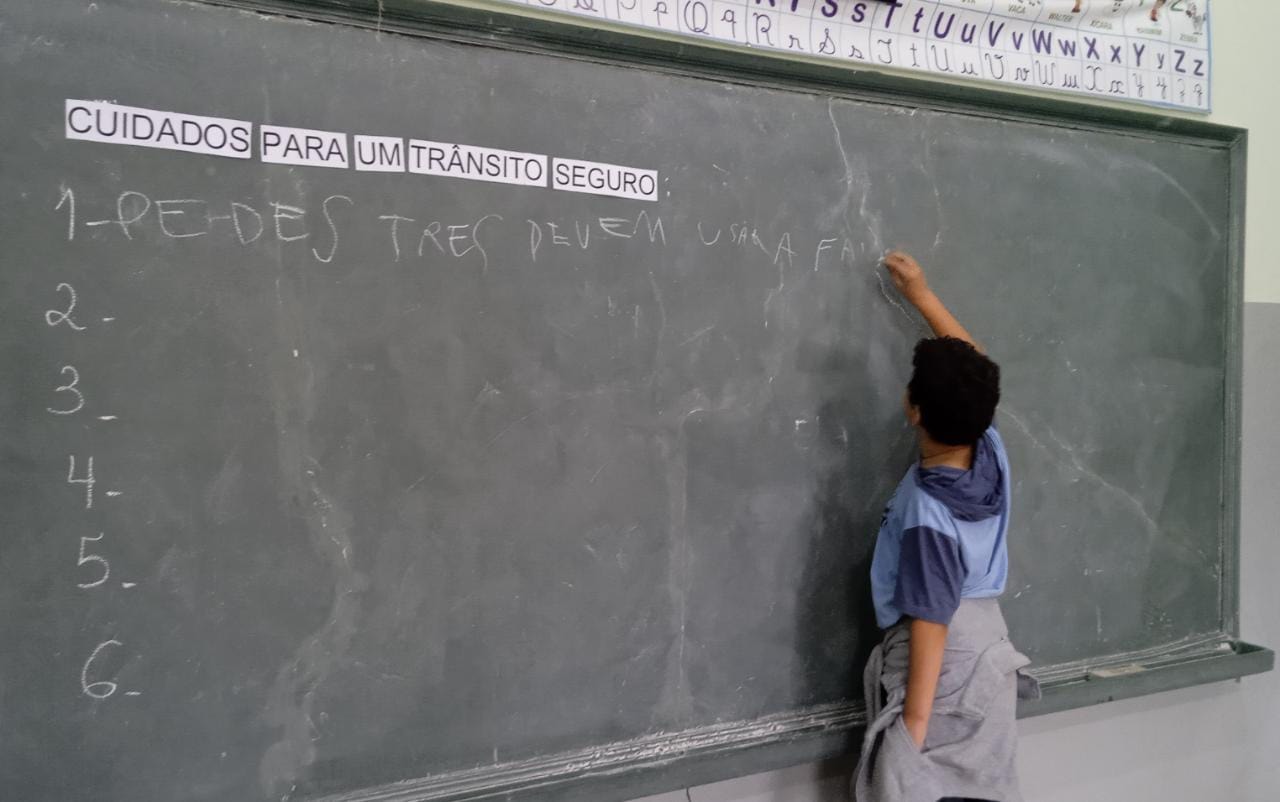 Q q R r S s T t U u V v W w X x Y y Z z
P p Q q R r S s T t U u V v W w X x Y y Z z
CUIDADOS PARA UM TRÂNSITO SEGURO
1-PE-DES TRES DEVEM USAR A FAI
2-
3-
4-
5-
6-